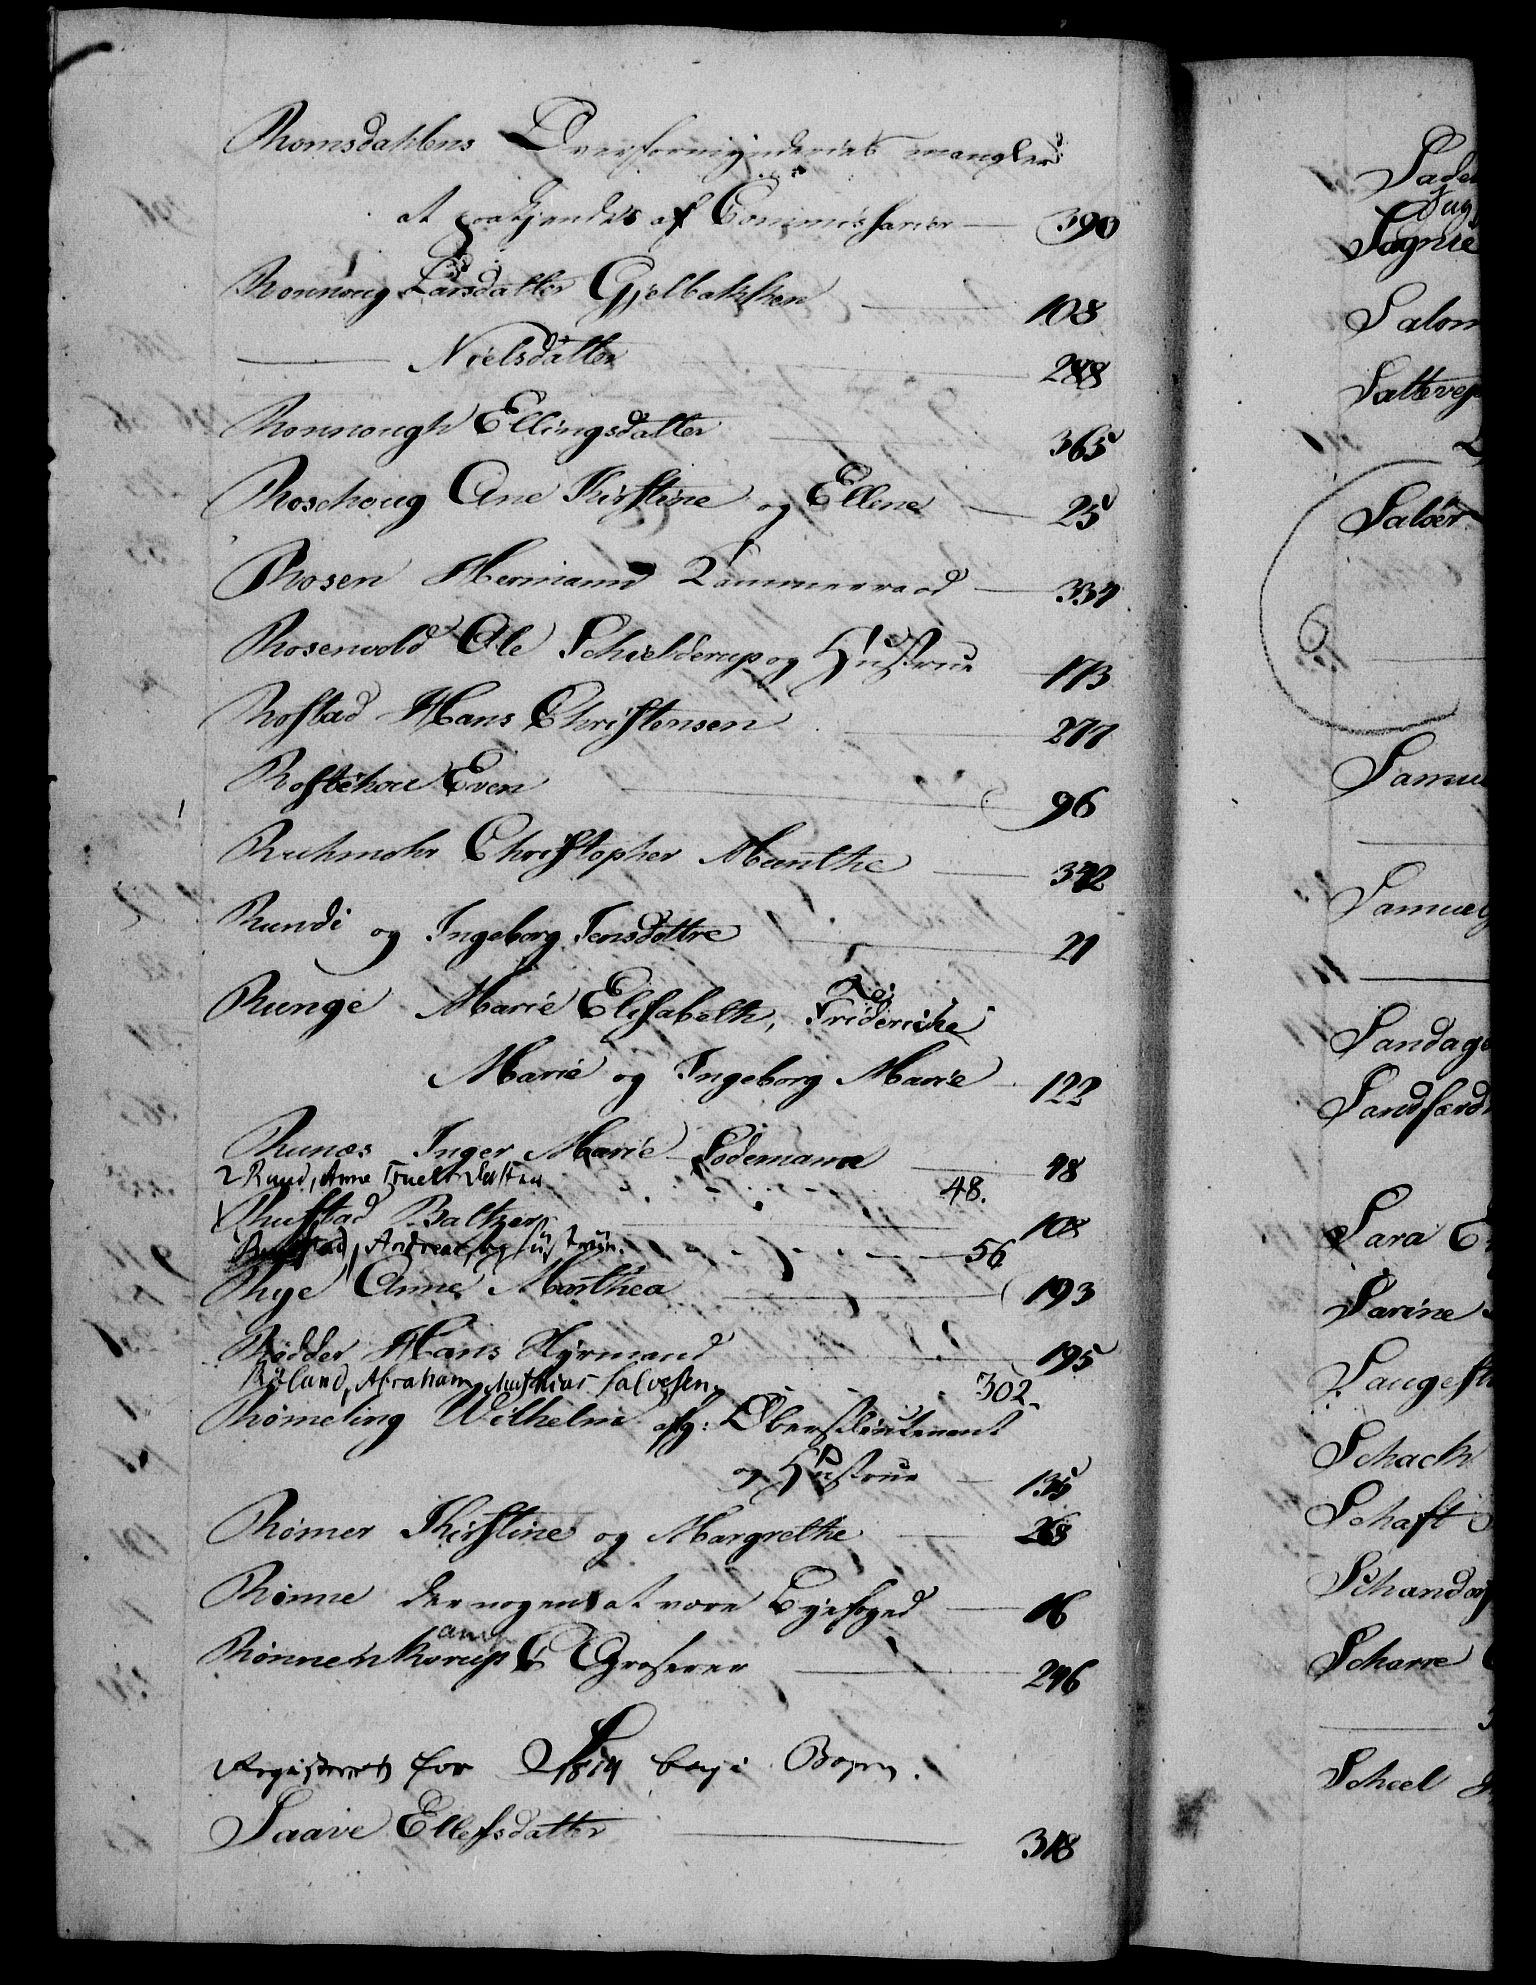 Romsdahlens Overformynderiets mangler
at paakjendes af Commissarier — 390
Ronnoug Larsdatter Gjelbakken — 108
— Nielsdatter — 288
Ronnough Ellingsdatter — 365
Roschoug Ane Kirstine og Ellene — 25
Rosen Hermand Kammerraad — 337
Rosenvold Ole Schielderup og Hustrue — 173
Rostad Hans Christensen — 277
Rostehoie Even — 96
Ruhmohr Christopher Munthe — 342
Rundi og Ingeborg Jensdøttre — 21
Runge Marie Elisabeth, Friderike
Marie og Ingeborg Marie — 122
Runæs Inger Marie Sodemann — 48
Ruud, Anne Truelsdatter 48.
Rustad Baltzer — 108
Andreas og Hustrue. 56
Rye Anne Marthea — 193
Rødder Hans Hyrmand — 195
Røland, Abraham Mathias Salvesen 302.
Rømeling Wilhelm afg: Oberstlieutenant
og Hustrue — 135
Rømer Kirstine og Margrethe — 268
Rønne den nogensat være Byefoged — 16
Rønnenkamp Grosserer — 246
S
Registeret for 1814 bag i Bogen.
Saave Ellefsdatter — 318
Sagnie
Salom
Saltvep
Saloer
Samue
Samuel
Sandage
Sandfærd
Sara E
Sarine
Saugest
Schack
Schaft
Schandorf
Scharre
Scheel